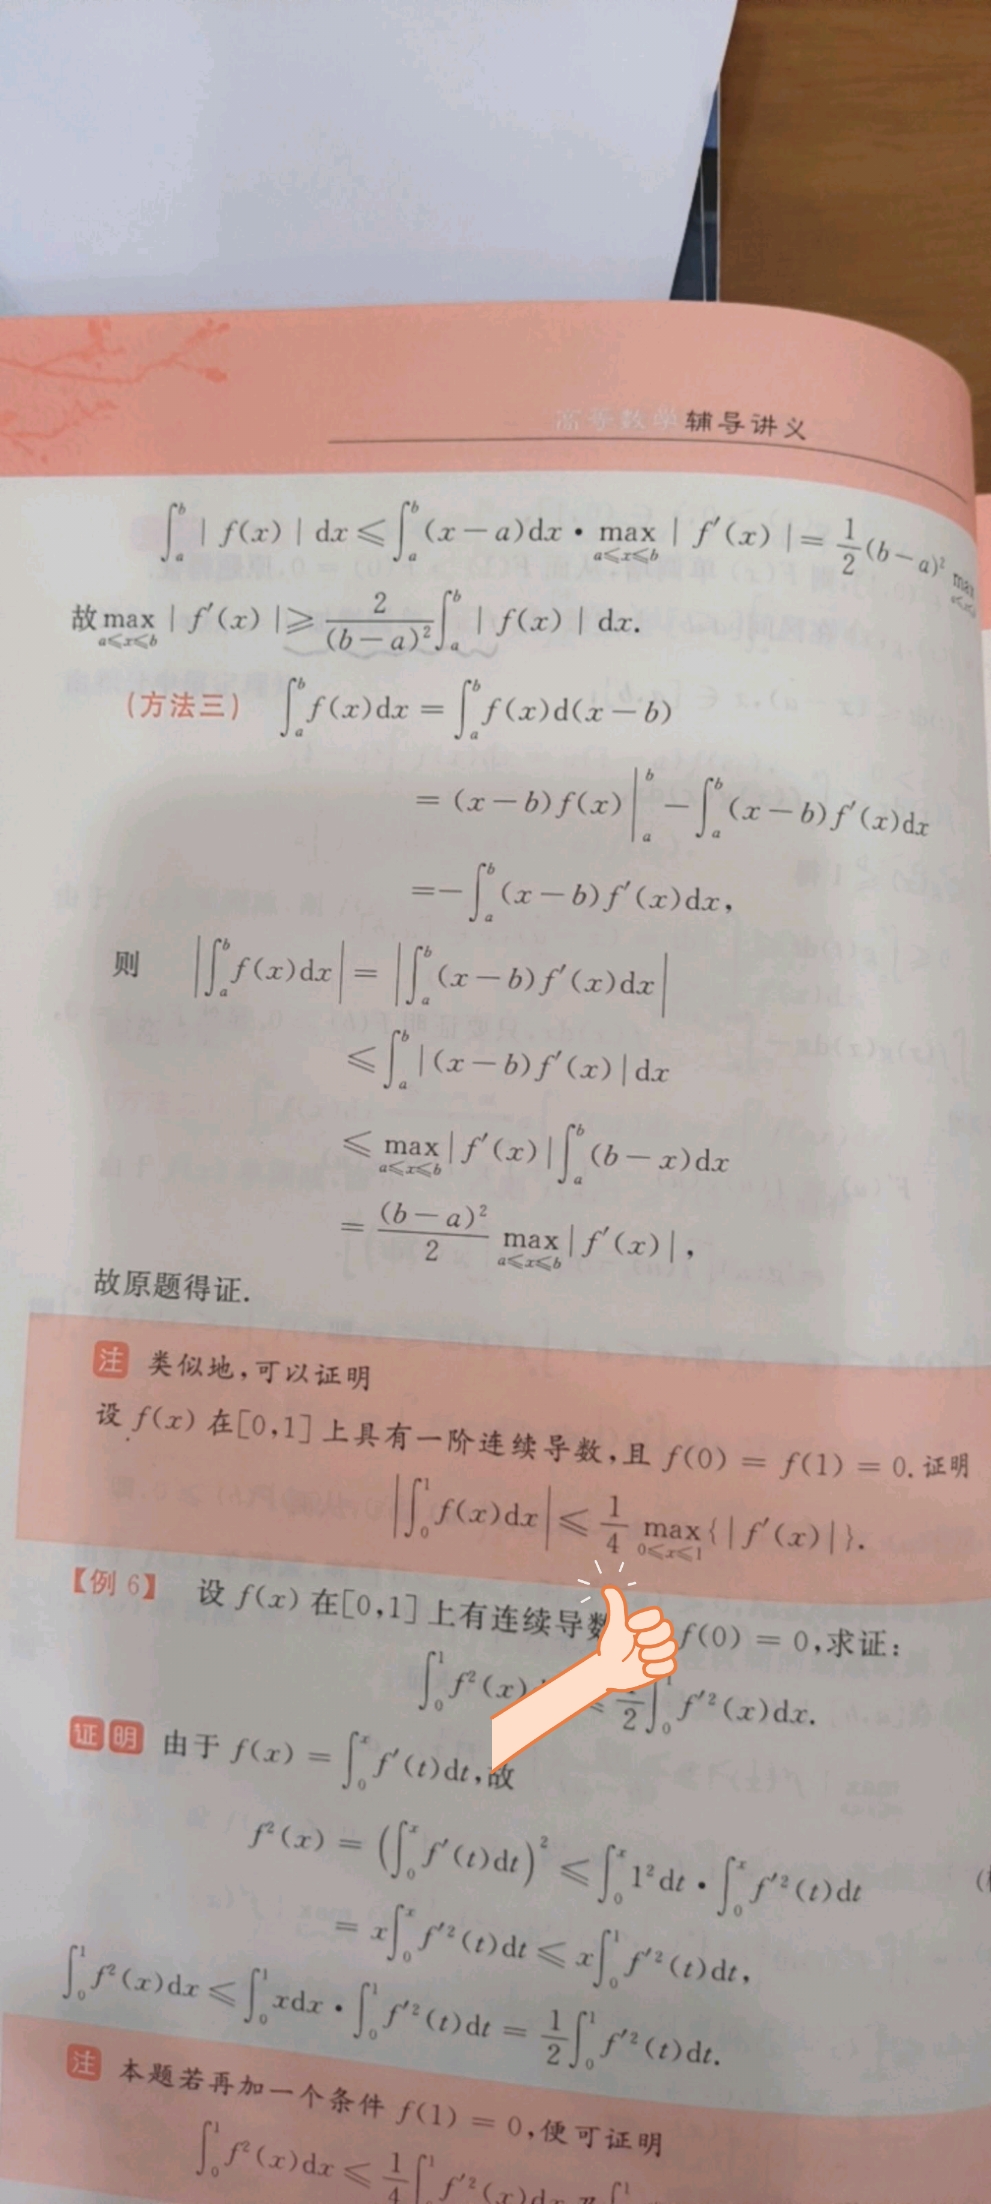 高等数学辅导讲义
∫ₐᵇ | f(x) | dx ⩽ ∫ₐᵇ (x − a)dx • max_{a⩽x⩽b} | f′(x) | = 1/2 (b − a)² max
故 max_{a⩽x⩽b} | f′(x) | ⩾ 2/(b − a)² ∫ₐᵇ | f(x) | dx.
(方法三) ∫ₐᵇ f(x)dx = ∫ₐᵇ f(x)d(x − b)
= (x − b)f(x) |ₐᵇ − ∫ₐᵇ (x − b)f′(x)dx
= − ∫ₐᵇ (x − b)f′(x)dx,
则 | ∫ₐᵇ f(x)dx | = | ∫ₐᵇ (x − b)f′(x)dx |
⩽ ∫ₐᵇ | (x − b)f′(x) | dx
⩽ max_{a⩽x⩽b} | f′(x) | ∫ₐᵇ (b − x)dx
= (b − a)²/2 max_{a⩽x⩽b} | f′(x) | ,
故原题得证.
注 类似地,可以证明
设 f(x) 在[0,1] 上具有一阶连续导数,且 f(0) = f(1) = 0. 证明
| ∫₀¹ f(x)dx | ⩽ 1/4 max_{0⩽x⩽1} { | f′(x) | }.
【例 6】 设 f(x) 在[0,1] 上有连续导 f(0) = 0,求证:
∫₀¹ f²(x) 1/2 ∫₀¹ f′²(x)dx.
证明 由于 f(x) = ∫₀ˣ f′(t)dt,故
f²(x) = (∫₀ˣ f′(t)dt)² ⩽ ∫₀ˣ 1²dt • ∫₀ˣ f′²(t)dt
= x∫₀ˣ f′²(t)dt ⩽ x∫₀¹ f′²(t)dt,
∫₀¹ f²(x)dx ⩽ ∫₀¹ xdx • ∫₀¹ f′²(t)dt = 1/2 ∫₀¹ f′²(t)dt.
注 本题若再加一个条件 f(1) = 0,便可证明
∫₀¹ f²(x)dx ⩽ 1/4 ∫₀¹ f′²(x)dx